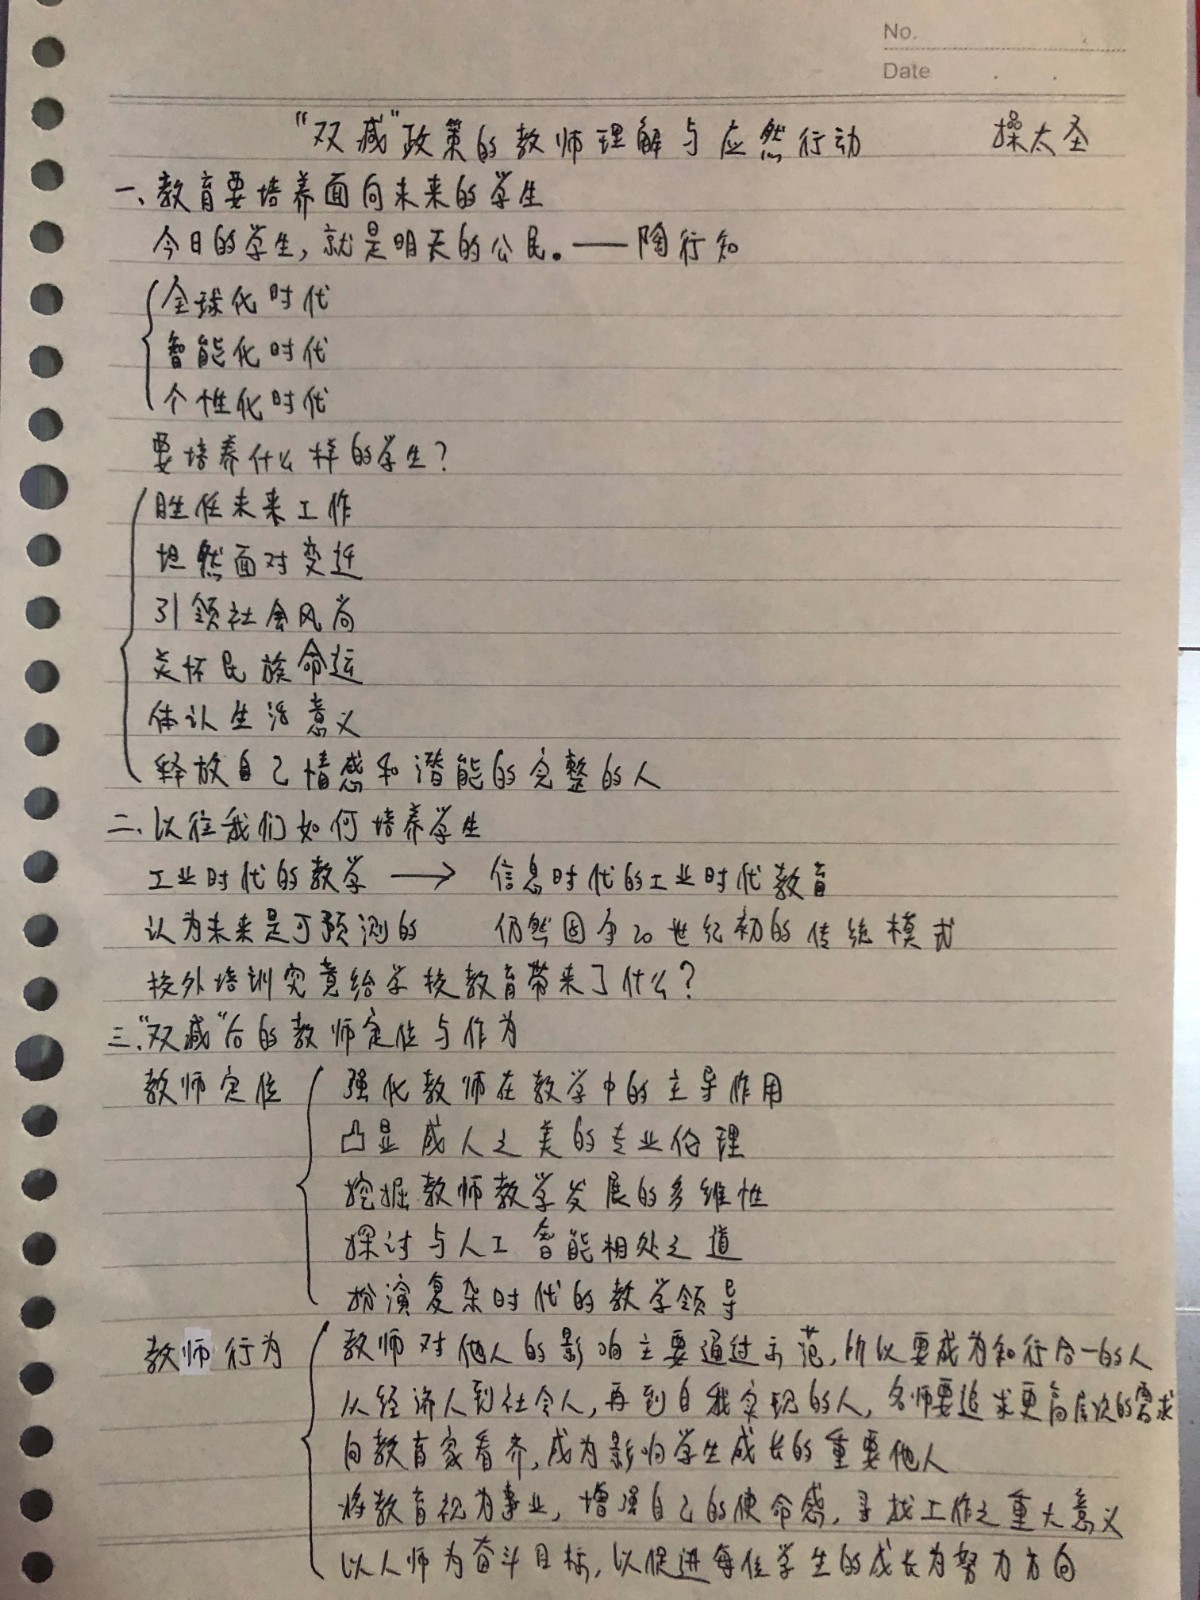 No.
Date
“双减”政策的教师理解与应然行动 操太圣
一、教育要培养面向未来的学生
今日的学生，就是明天的公民。——陶行知
全球化时代
智能化时代
个性化时代
要培养什么样的学生？
胜任未来工作
坦然面对变迁
引领社会风尚
关怀民族命运
体认生活意义
释放自己情感和潜能的完整的人
二、以往我们如何培养学生
工业时代的教学 ⟶ 信息时代的工业时代教育
认为未来是可预测的 仍然因争20世纪初的传统模式
校外培训究竟给学校教育带来了什么？
三、“双减”后的教师定位与作为
教师定位 强化教师在教学中的主导作用
凸显成人之美的专业伦理
挖掘教师教学发展的多维性
探讨与人工智能相处之道
扮演复杂时代的教学领导
教师行为 教师对他人的影响主要通过示范，所以要成为知行合一的人
从经济人到社会人，再到自我实现的人，名师要追求更高层次的需求
向教育家看齐，成为影响学生成长的重要他人
将教育视为事业，增强自己的使命感，寻找工作之重大意义
以人师为奋斗目标，以促进每位学生的成长为努力方向